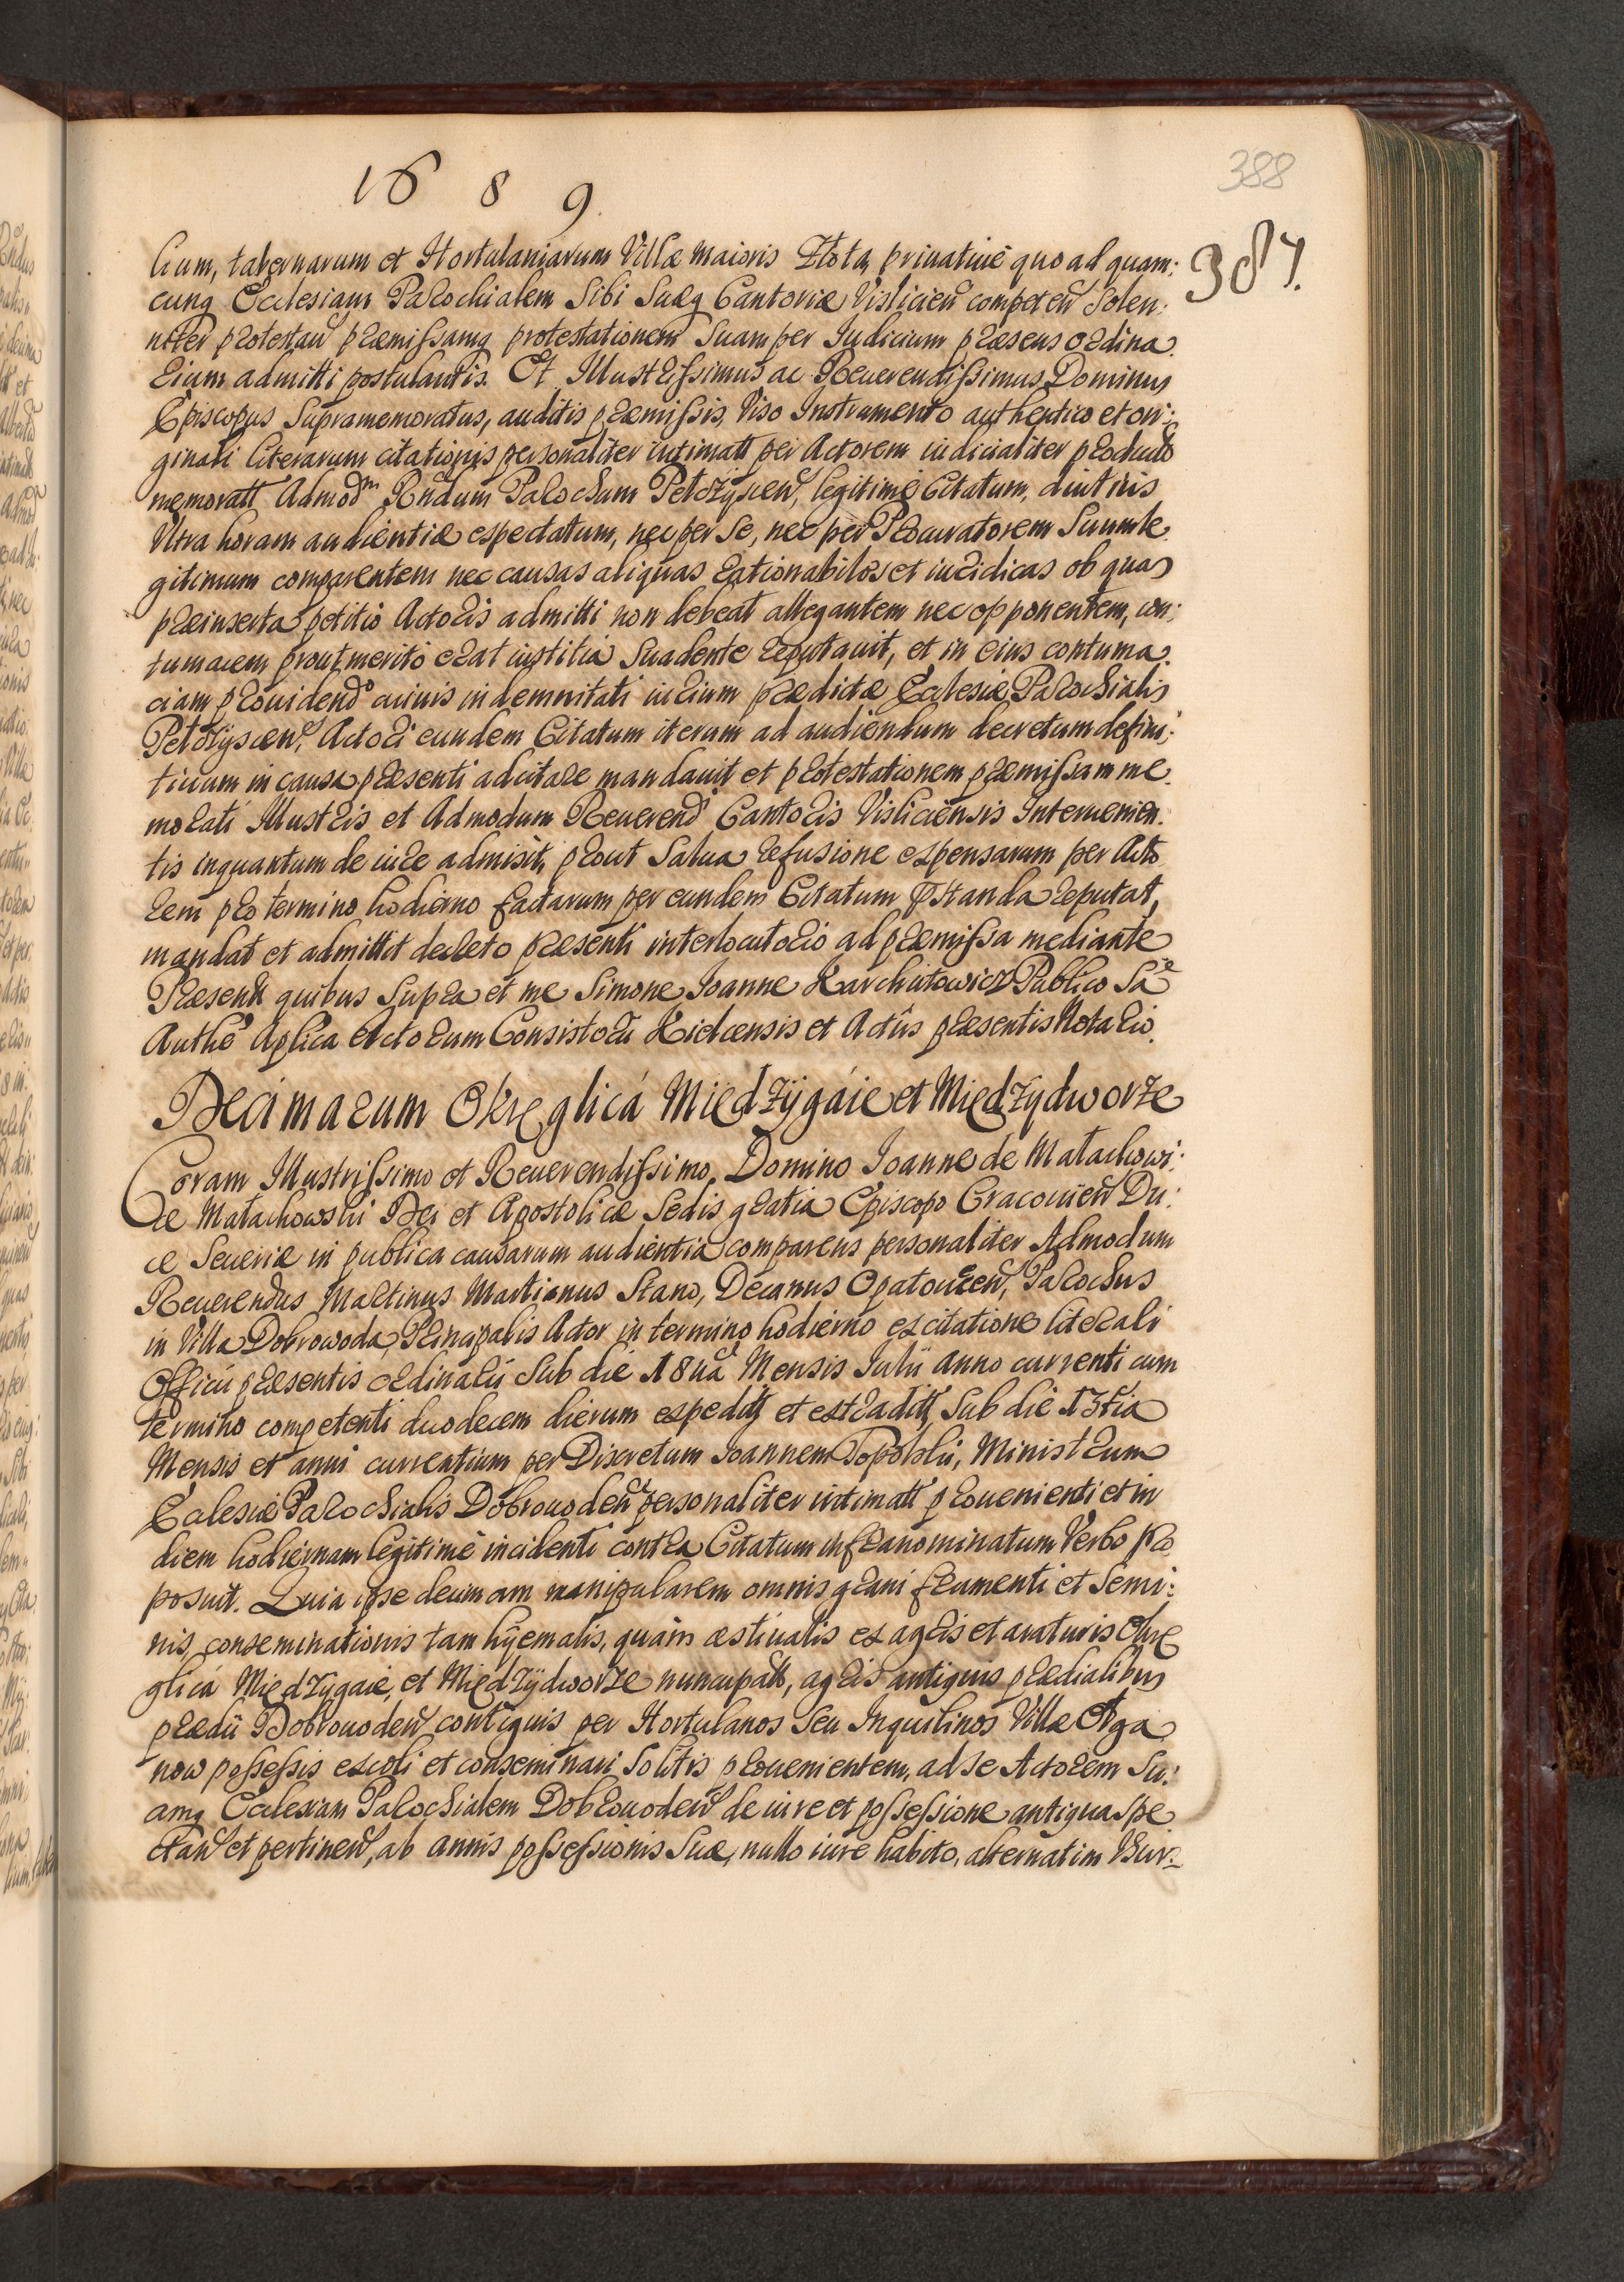 1689.
388
387.
lium, tabernarum et Hortulaniarum Villæ maioris Złota, priuatiuè quo ad quam:
cunq Ecclesiam Parochialem Sibi Suæq Cantoriæ Vislicieñ competeñ Solen:
niter protestañ præmissamq protestationem Suam per Iudicium præsens ordina:
rium admitti postulantis. Et Illustrissimus ac Reuerendissimus Dominus
Episcopus Supramemoratus, auditis præmissis, Viso Instrumento authentico et ori:
ginali literarum citationis personaliter intimatt per Actorem iudicialiter producto
memoratt Admodm Rñdum Parochum Petrzyscieñ, legitimè Citatum, diutius
Vltra horam audientiæ expectatum, nec per Se, nec per Procuratorem Suum le:
gitimum comparentem nec causas aliquas rationabiles et iuridicas ob quas
præinserta petitio Actoris admitti non debeat allegantem nec opponentem, con:
tumacem prout merito erat iustitia Suadente reputauit, et in eius contuma:
ciam prouidendo cuiuis indemnitati iurium prædictæ Ecclesiæ Parochialis
Petrzysceñ, Actori eundem Citatum iterum ad audiendum decretum defini:
tiuum in causa præsenti adcitare mandauit et protestationem præmissam me:
morati Illustris et Admodum Reuerendi Cantoris Visliciensis Interuenien:
tis inquantum de iure admisit, prout Salua refusione expensarum per Acto
rem pro termino hodierno factarum per eundem Citatum præstanda reputat,
mandat et admittit decreto præsenti interlocutorio ad præmissa mediante
Præsentt quibus Supra et me Simone Joanne Karchutowicz Publico Sã
Authẽ Aplica Actorum Consistorii Kielcensis et Actûs præsentis Notario.
Decimarum Okręglicá Międzÿgáie et Międzÿdworze
Coram Illustrissimo et Reuerendissimo, Domino Ioanne de Małachowi:
ce Małachowski Dei et Apostolicæ Sedis gratia Episcopo Cracouieñ Du:
ce Seueriæ in publica causarum audientia comparens personaliter Admodum
Reuerendus Martinus Martianus Stano, Decanus Opatoueceñ, Parochus
in Villa Dobrowoda, Principalis Actor in termino hodierno ex citatione literali
Officii præsentis ordinarii Sub die 18ua Mensis Iulii anno currenti cum
termino competenti duodecem dierum expeditt et extraditt, Sub die 13tia
Mensis et anni currentium per Discretum Joannem Topolski, Ministrum
Ecclesiæ Parochialis Dobrouodeñ personaliter intimatt prouenienti et in
diem hodiernam legitimè incidenti contra Citatum infranominatum Verbo pro
posuit. Quia ipse decimam manipularem omnis grani frumenti et Semi:
nis, conseminationis tam hÿemalis, quàm æstiualis ex agris et araturis Okrę
glicá Międzÿgaie, et Międzÿdworze nuncupatt, agris antiquis prædialibus
prædii Dobrouodeñ contiguis per Hortulanos Seu Inquilinos Villæ Oga
now possessis excoli et conseminari Solitis prouenientem, ad Se Actorem Su:
amq Ecclesiam Parochialem Dobrouodeñ de iure et possessione antiqua spe
ctañ et pertineñ, ab annis possessionis Suæ, nullo iure habito, alternatim Vsur: